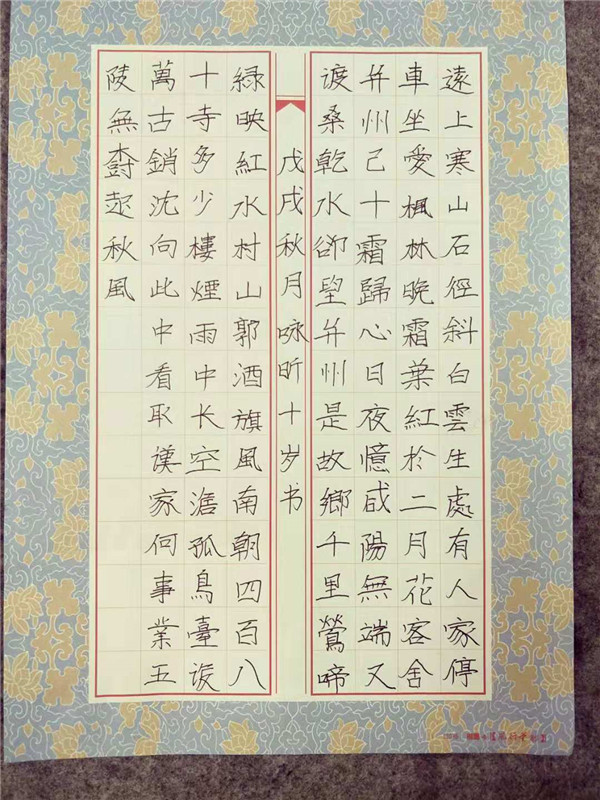 遠上寒山石徑斜白雲生處有人家停
車坐愛楓林晚霜葉紅於二月花客舍
并州己十霜歸心日夜憶咸陽無端又
渡桑乾水卻望并州是故鄉千里鶯啼
戊戌秋月咏昕十岁书
綠映紅水村山郭酒旗風南朝四百八
十寺多少樓煙雨中长空澹孤鳥臺没
萬古銷沈向此中看取漢家何事業五
陵無樹起秋風